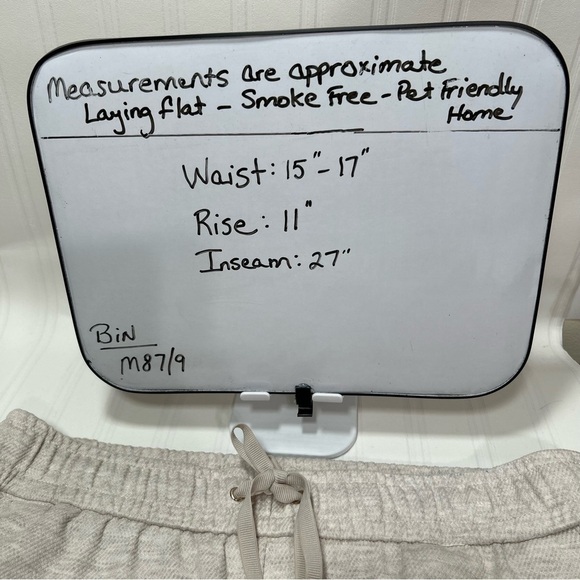 Measurements are approximate
Laying flat - Smoke Free - Pet Friendly
Home
Waist: 15" - 17"
Rise: 11"
Inseam: 27"
BiN
M87/9